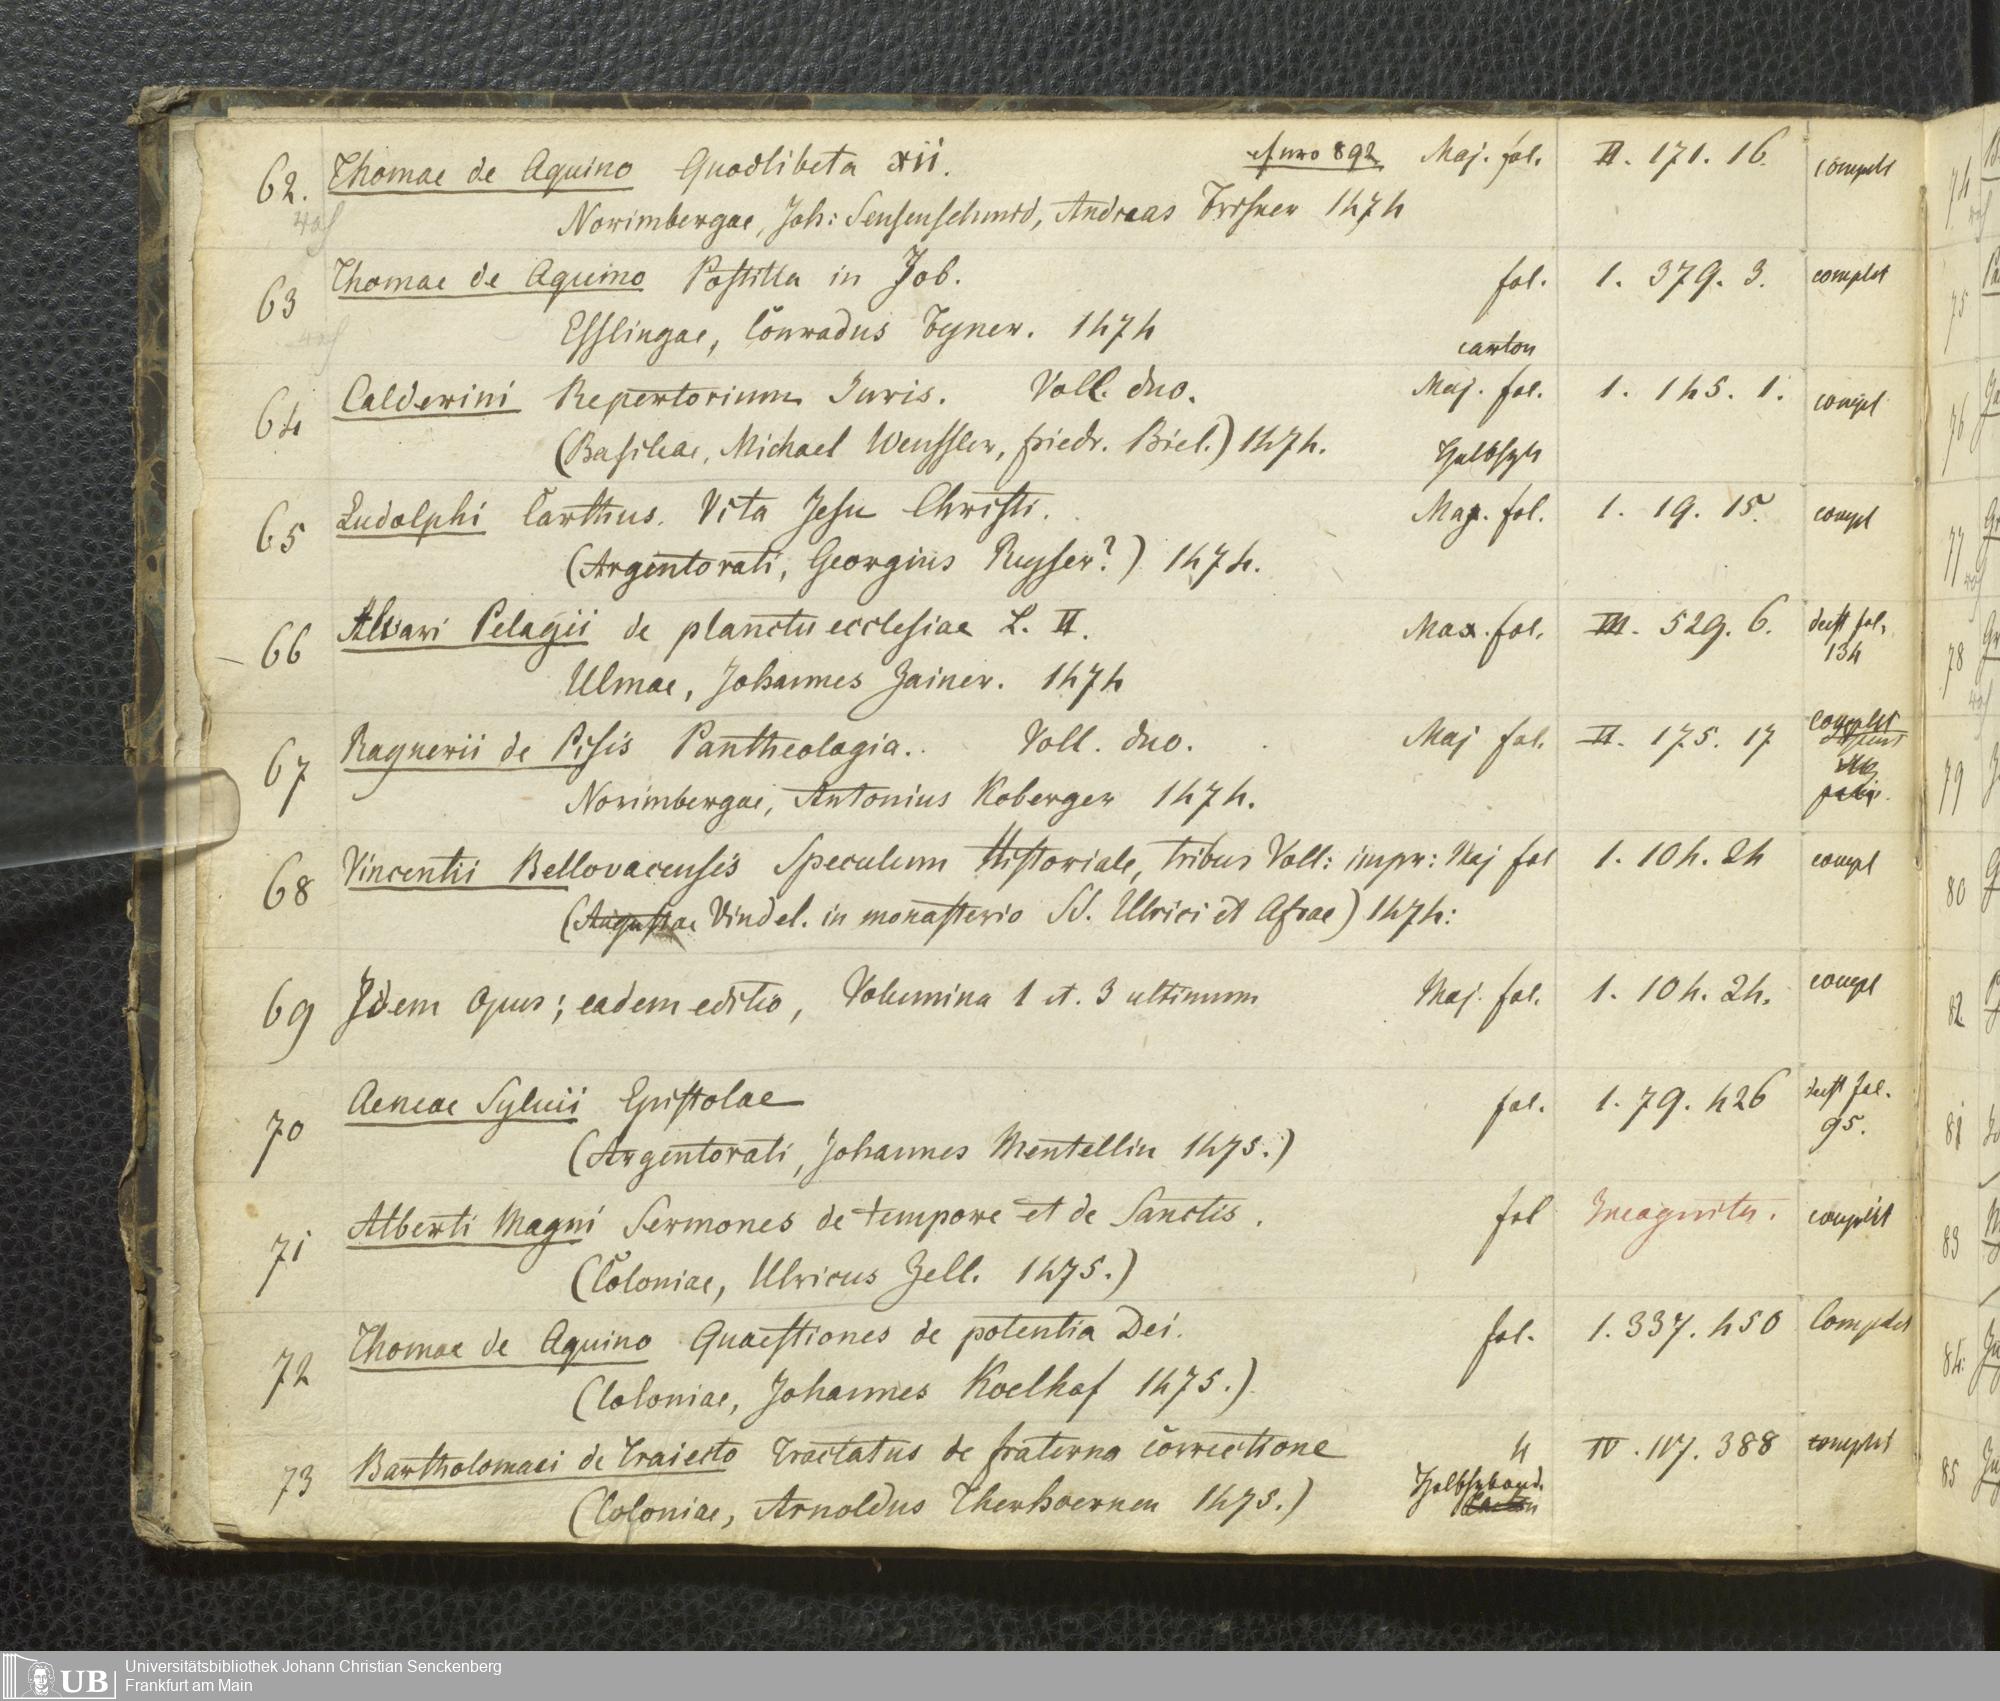 62. Thomae de Aquino Quodlibeta xii. cf nro 892 Maj. fol. II. 171. 16. complt
Norimbergae, Joh: Sensenschmid, Andreas Frisner 1474
63 Thomae de Aquino Postilla in Job. fol. 1. 379. 3. complet
Esslingae, Conradus Fyner. 1474
carton
64 Calderini Repertorium Juris. Voll. duo. Maj. fol. 1. 145. 1. compl
(Basileae, Michael Wenssler, friedr. Biel.) 1474. Halbfzb
65 Ludolphi Carthus. Vita Jesu Christi. Max. fol. 1. 19. 15. compl
(Argentorati, Georgius Reyser?) 1474.
66 Alvari Pelagii de planctu ecclesiae L. II. Max. fol. III. 529. 6. deest fol.
134
Ulmae, Johannes Zainer. 1474
67 Raynerii de Pisis Pantheologia. Voll. duo. Maj fol. II. 175. 17 complet
Norimbergae, Antonius Koberger 1474.
68 Vincentii Bellovacensis Speculum Historiale, tribus Voll: impr: Maj fol 1. 104. 24 compl
(Augustae Vindel. in monasterio SS. Ulrici et Afrae) 1474:
69 Idem Opus; eadem editio, Volumina 1 et. 3 ultimum Maj. fol. 1. 104. 24. compl
70 Aeneae Sylvii Epistolae fol. 1. 79. 426 deest fol.
95.
(Argentorati, Johannes Mentellin 1475.)
71 Alberti Magni Sermones de tempore et de Sanctis. fol Incognita. complet
(Coloniae, Ulricus Zell. 1475.)
72 Thomae de Aquino Quaestiones de potentia Dei. fol. 1. 337. 450 Complet
(Coloniae, Johannes Koelhof 1475.)
73 Bartholomaei de Traiecto Tractatus de fraterna correctione 4 IV. 117. 388 complet
Halbfzband.
(Coloniae, Arnoldus Therhoernen 1475.) Carton
74
75
76
77
78
79
80
82
81
83
84.
85
UB Universitätsbibliothek Johann Christian Senckenberg
Frankfurt am Main